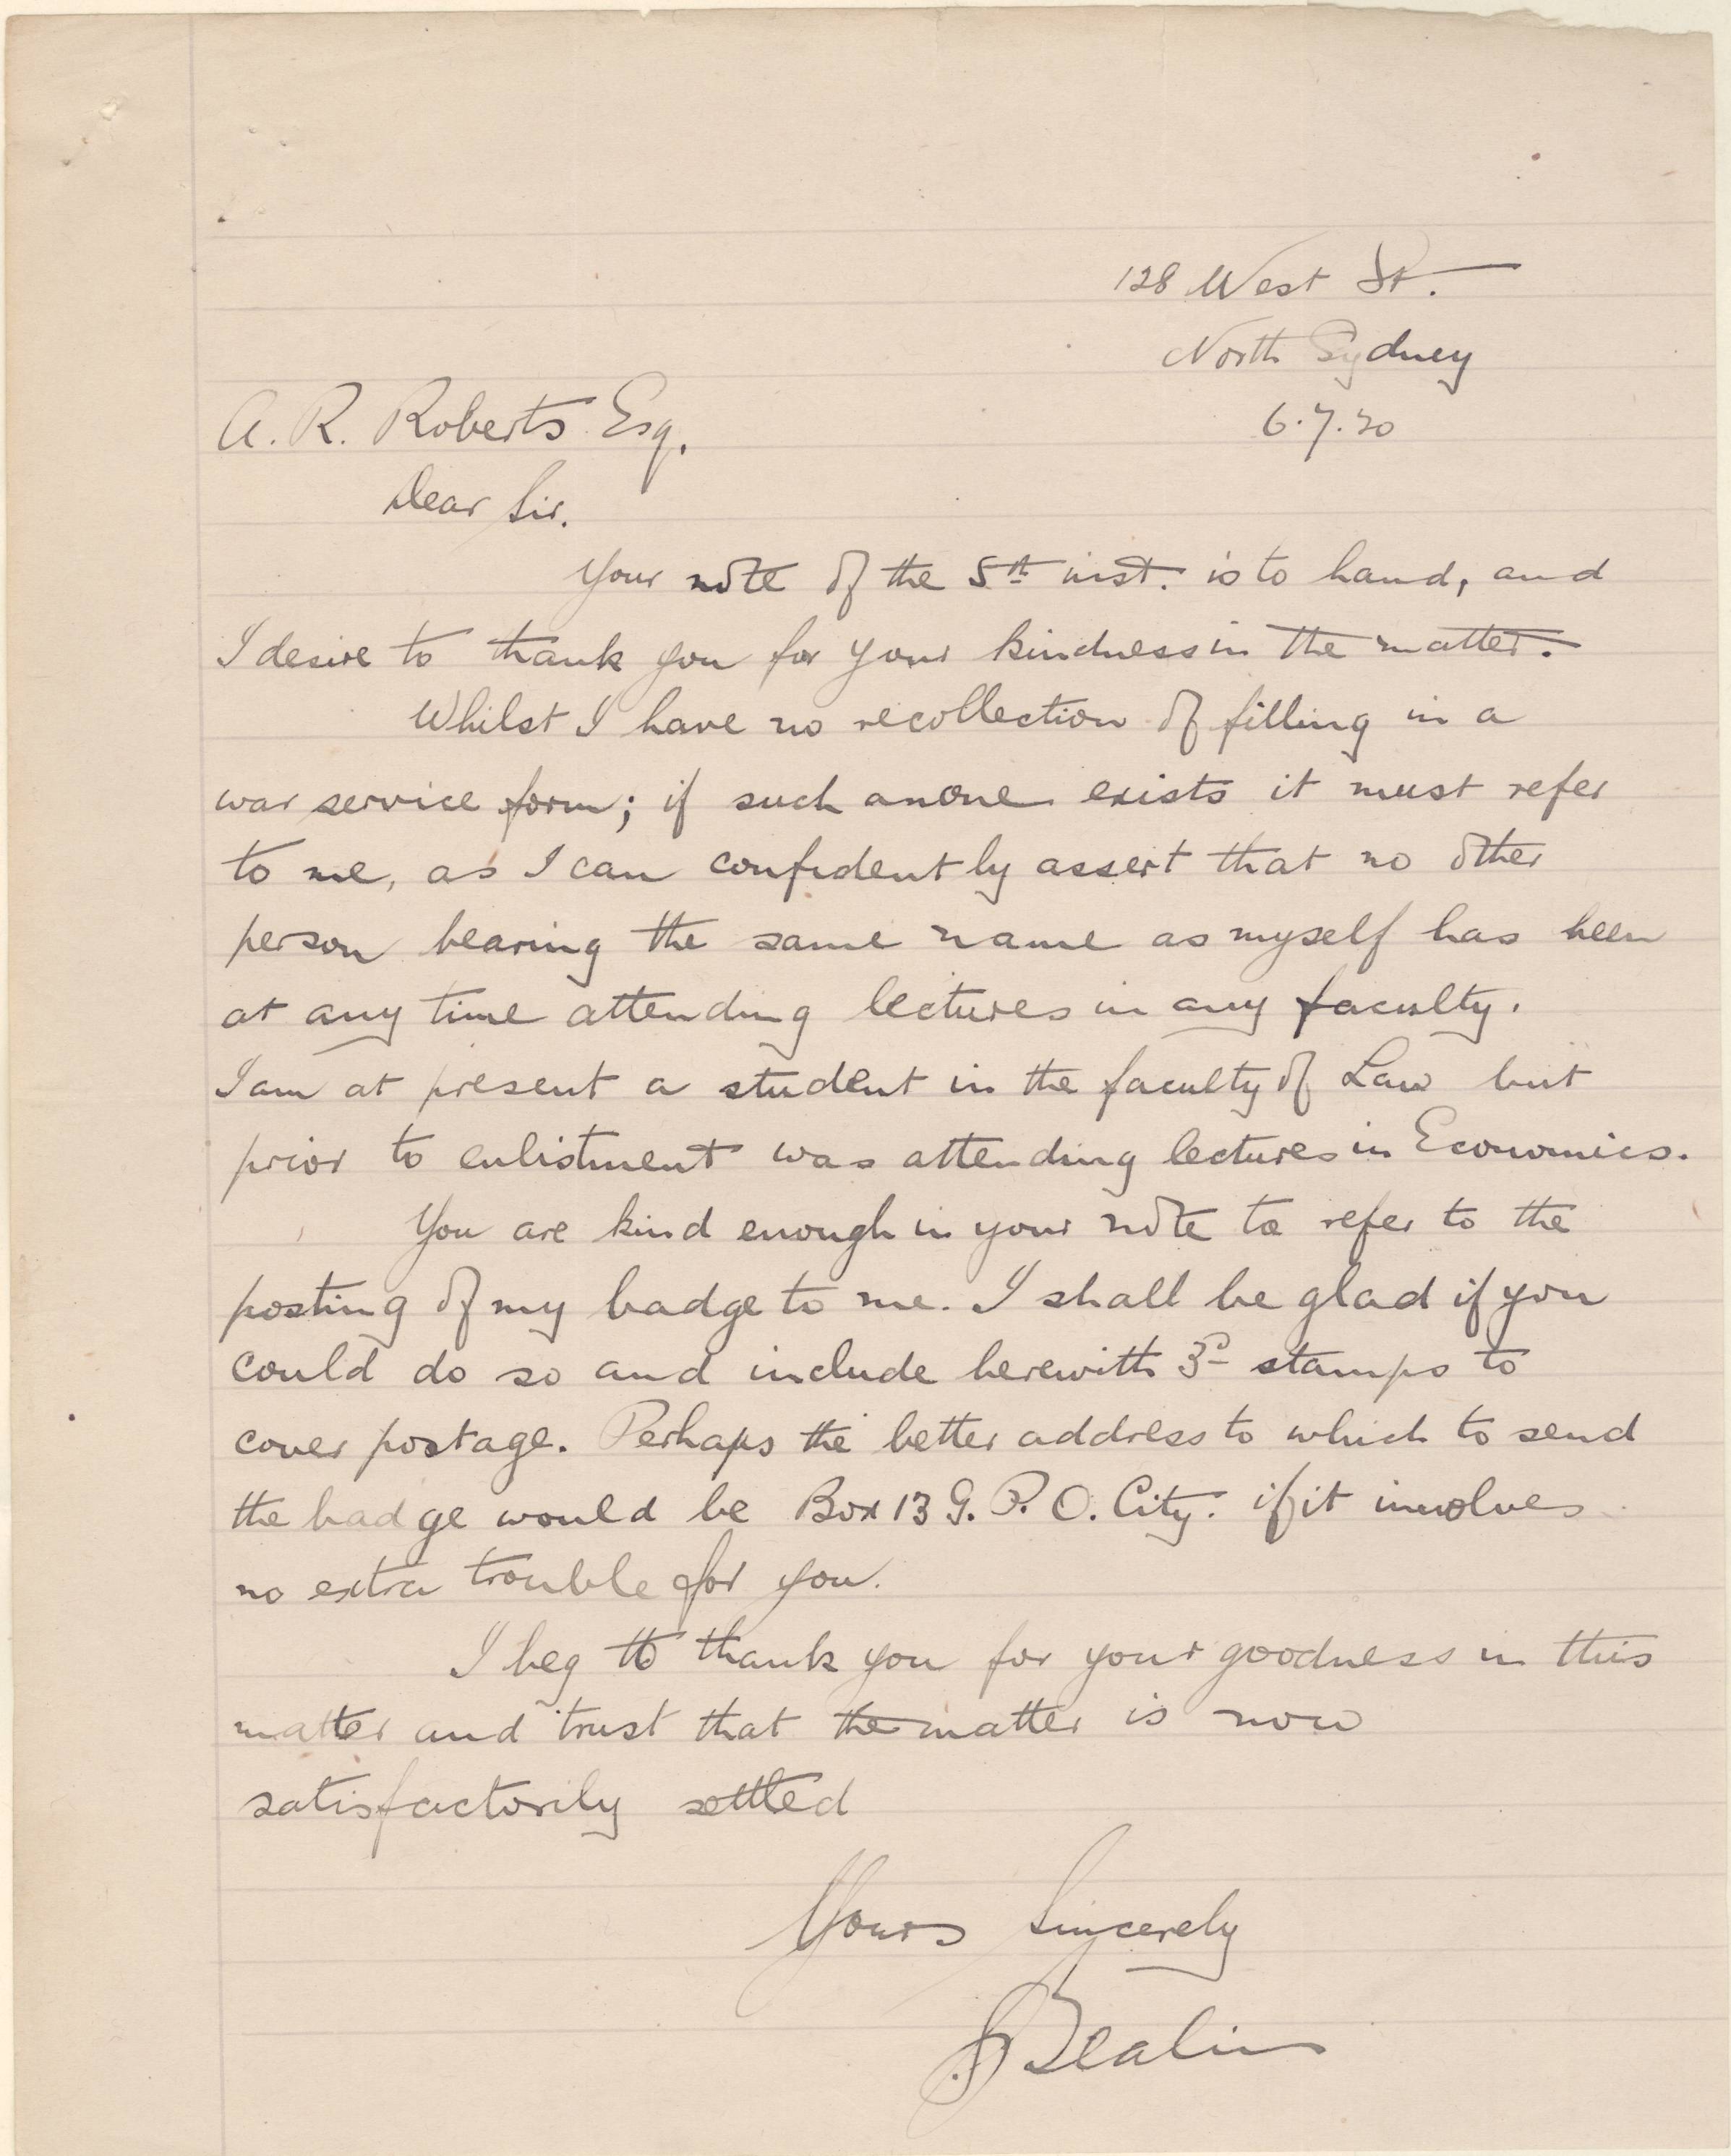 128 West St.
North Sydney
6.7.20
A. R. Roberts Esq.
Dear Sir.
Your note of the 5th inst. is to hand, and
I desire to thank you for your kindness in the matter.
Whilst I have no recollection of filling in a
war service form; if such an one exists it must refer
to me, as I can confidently assert that no other
person bearing the same name as myself has been
at any time attending lectures in any faculty.
I am at present a student in the faculty of Law but
prior to enlistment was attending lectures in Economics.
You are kind enough in your note to refer to the
posting of my badge to me. I shall be glad if you
could do so and include herewith 3d stamps to
cover postage. Perhaps the better address to which to send
the badge would be Box 13 G. P. O. City. if it involves
no extra trouble for you.
I beg to thank you for your goodness in this
matter and trust that the matter is now
satisfactorily settled
Yours Sincerely